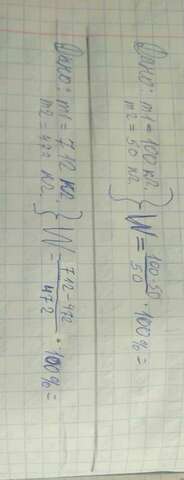 Дано: m1 = 100 кг.
m2 = 50 кг } W = \frac{100-50}{50} · 100% =
Дано: m1 = 712 кг
m2 = 472 кг. } W = \frac{712-472}{472} · 100% =